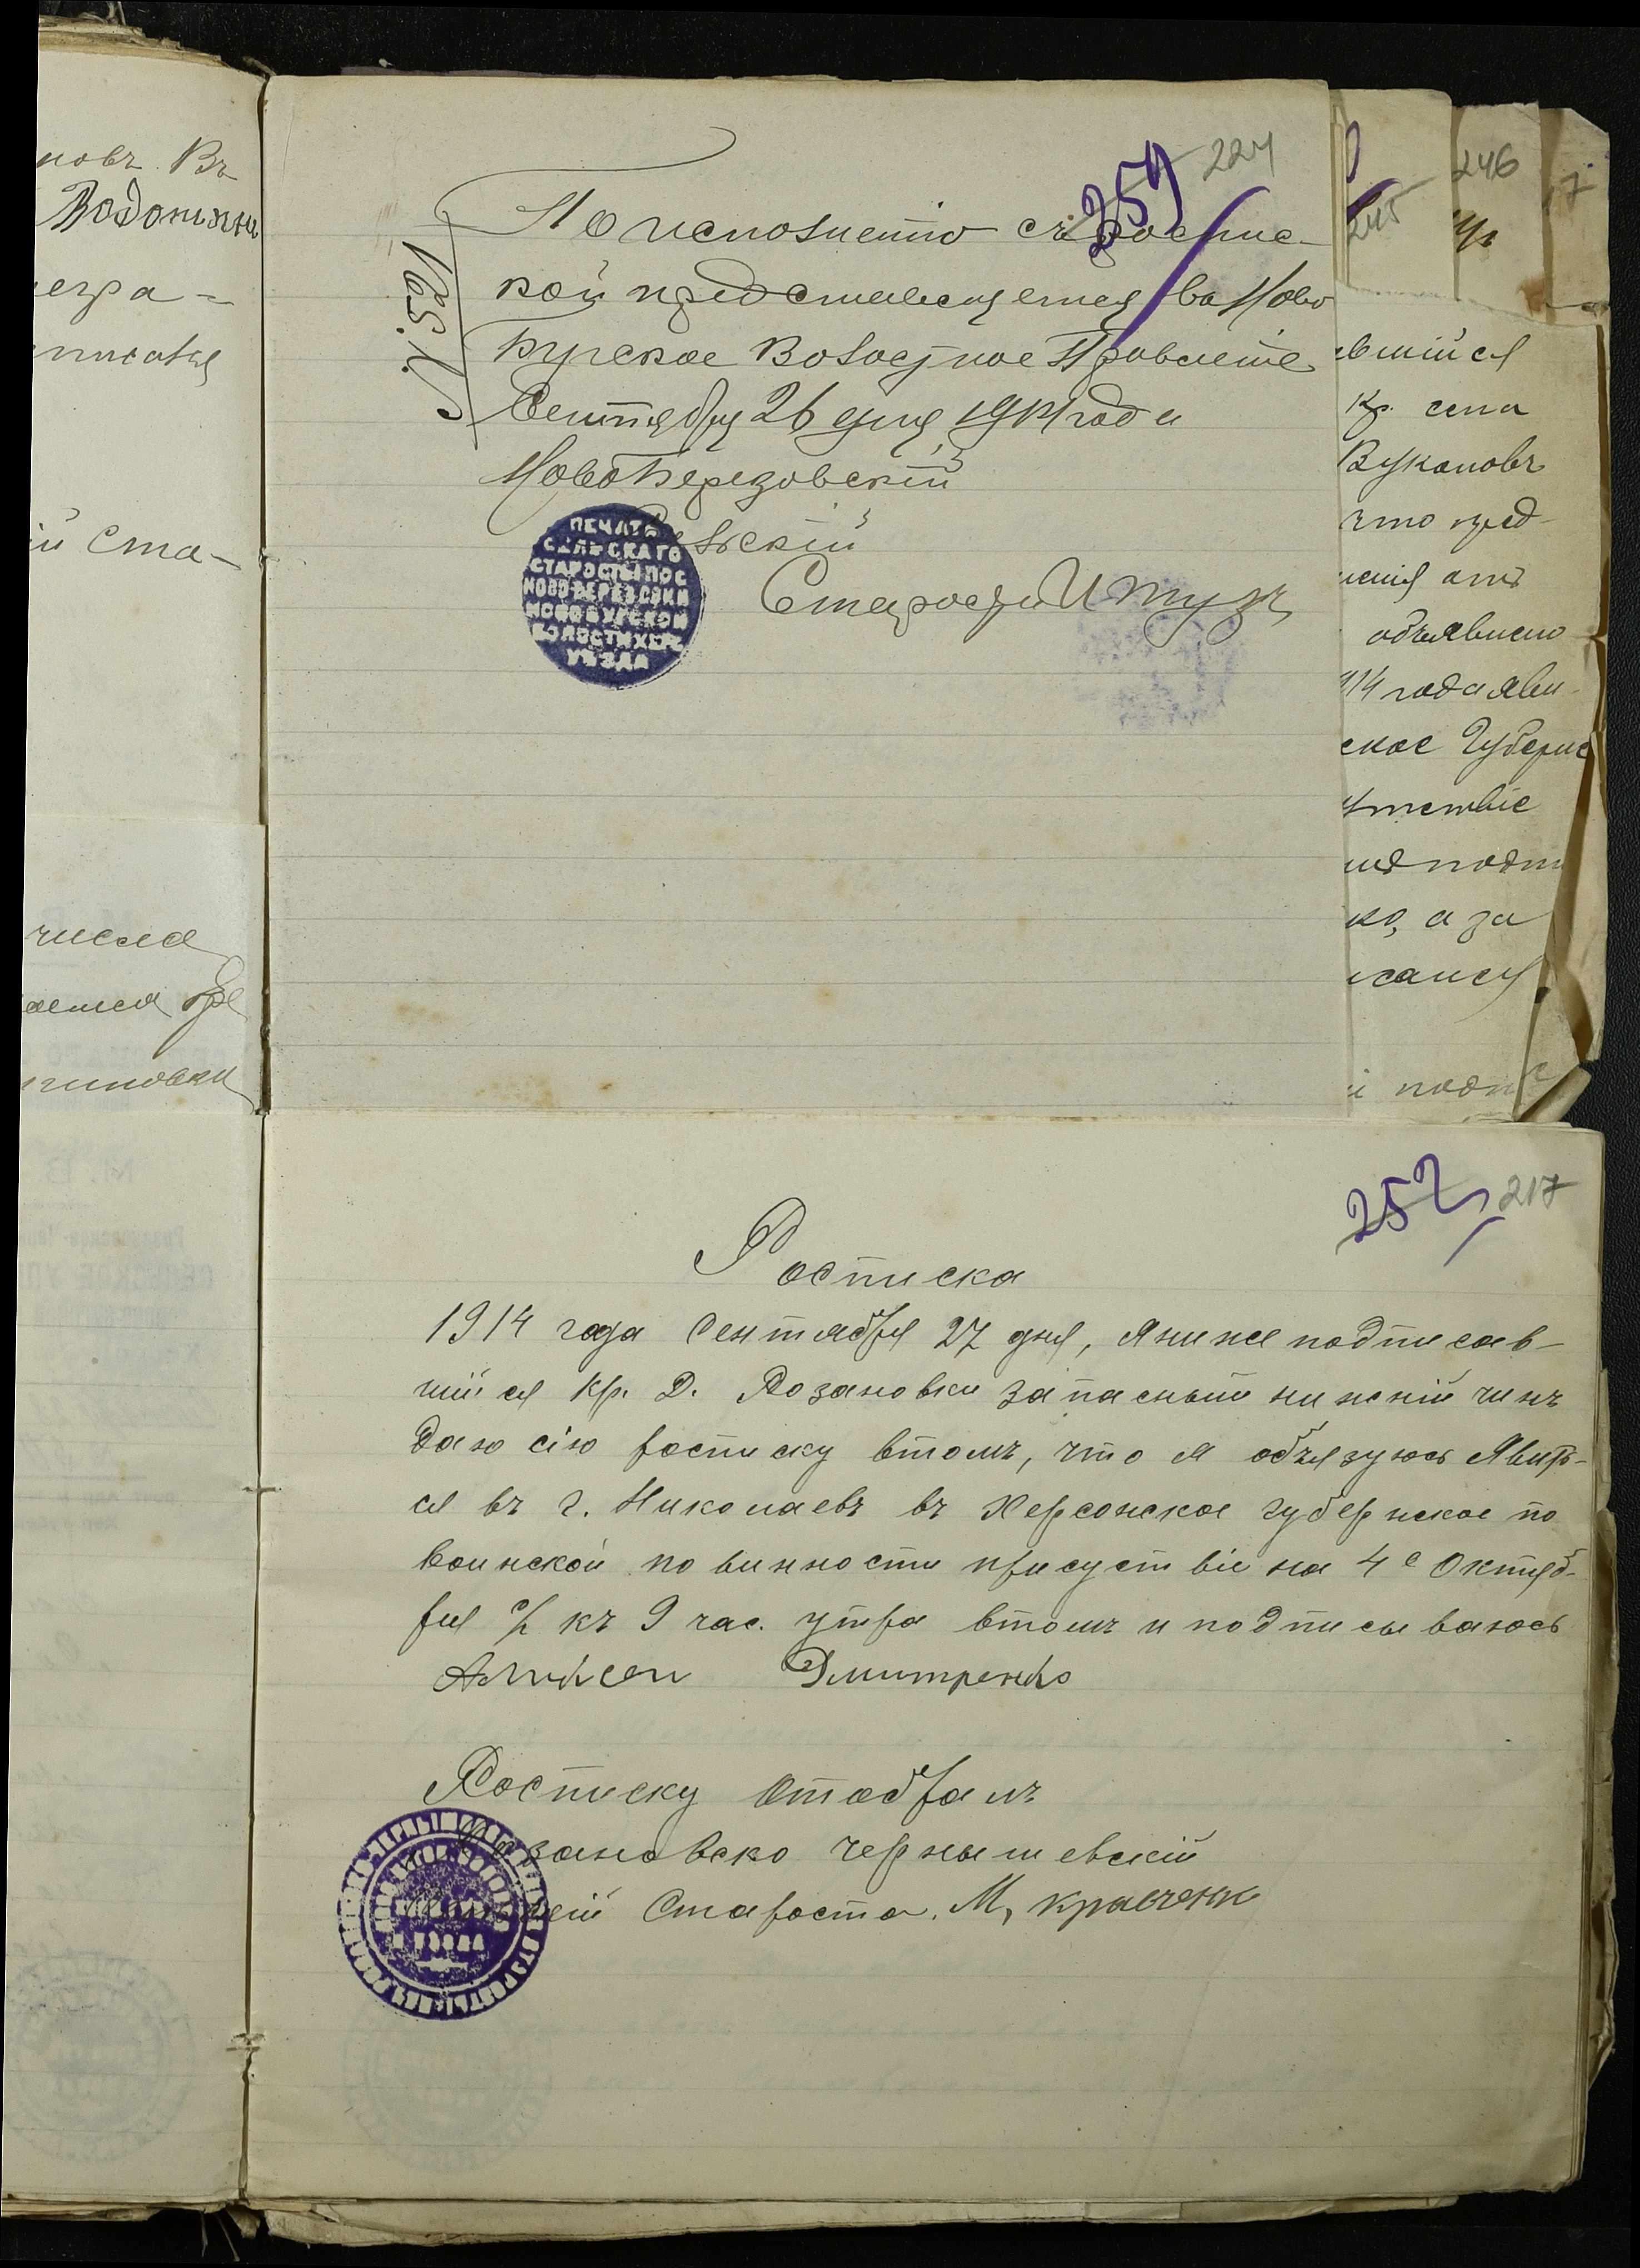 новъ. Въ
Водопьян
егра-
ій Ста-
числа
ается
254 224
№ 521
По исполненію съ роспис-
кой представляется въ Ново
Бугское Волостное Правленіе
Сентября 26 дня 1914 года
НовоБерезовскій
Сельскій
Староста
ПЕЧАТЬ
СЕЛЬСКАГО
СТАРОСТЫ ПОС
НОВОБЕРЕЗОВКИ
НОВОБУГСКОЙ
ВОЛОСТИ ХЕР.
УѢЗДА
245
246
7
вшійся
кр. села
Букановъ
что пред-
ченія
объявлено
914 года яви-
ское Губернс
утствіе
ко, а за
исался
252 217
Росписка
1914 года Сентября 27 дня, я ниже подписав-
шійся Кр. Д. Розановки запасный нижній чинъ
даю сію росписку втомъ, что я объязуюсь Явить-
ся въ г. Николаевъ въ Херсонское губернское по
воинской повинности присуствіе на 4е Октяб-
ря с/г къ 9 час. утра втомъ и подписываюсь
Дмитренко
Росписку Отобралъ
Розановско Чернышевскій
Сельскій Староста. М, Кравченк